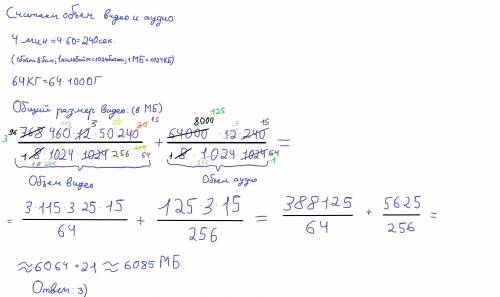 Считаем объем видео и аудио
4 мин = 4·60 = 240 сек.
(1 байт=8 бит; 1 килобайт=1024 байта; 1 МБ=1024 КБ)
64 КГ = 64·1000 Г
Общий размер видео: (в МБ)
768·460·12·50·240 / 8·1024·1024 + 64000·12·240 / 8·1024·1024 =
Объем видео Объем аудио
= 3·115·3·25·15 / 64 + 125·3·15 / 256 = 388125 / 64 + 5625 / 256 =
≈ 6064 + 21 ≈ 6085 МБ.
Ответ: 3)